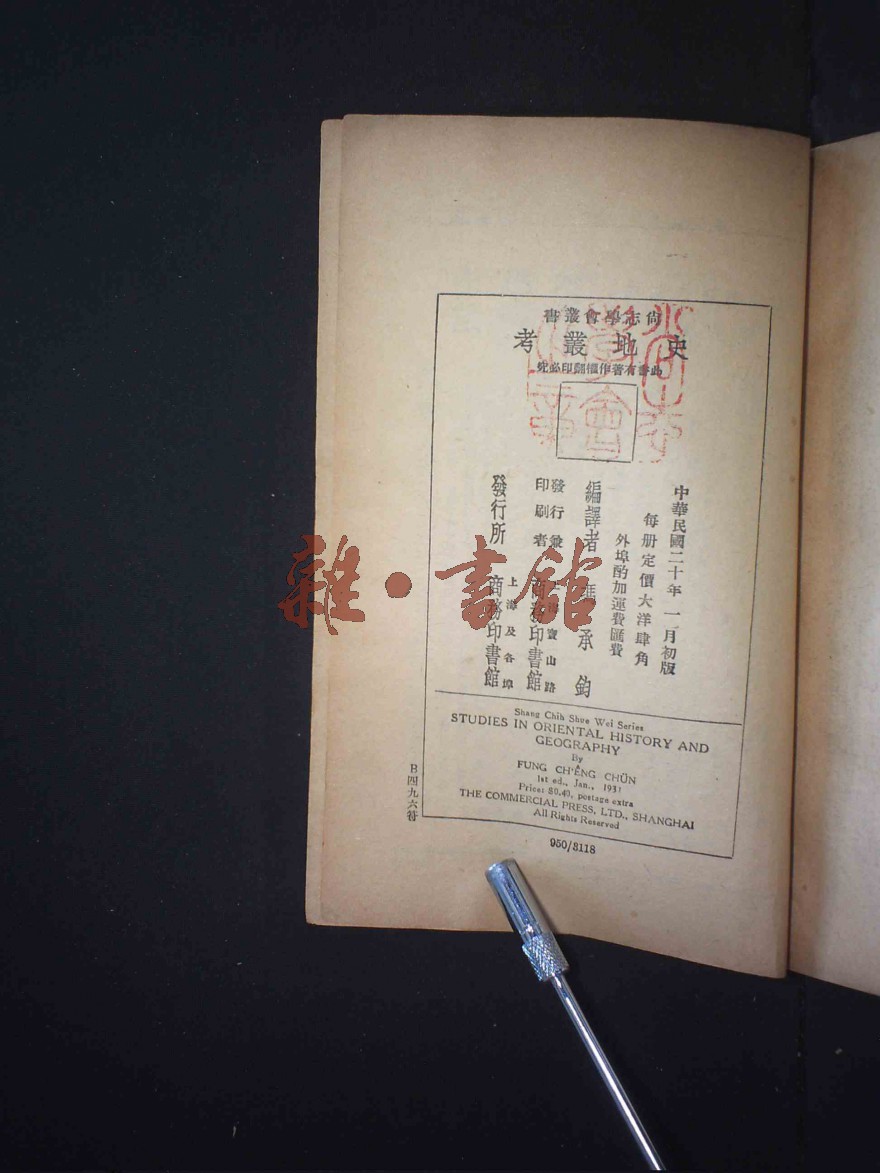 尚志學會叢書
史地叢考
此書有著作權翻印必究
中華民國二十年一月初版
每册定價大洋肆角
外埠酌加運費匯費
編譯者 馮承鈞
發行兼印刷者 上海寶山路 商務印書館
發行所 上海及各埠 商務印書館
Shang Chih Shue Wei Series
STUDIES IN ORIENTAL HISTORY AND
GEOGRAPHY
By
FUNG CH'ÊNG CHÜN
1st ed., Jan., 1931
Price: $0.40, postage extra
THE COMMERCIAL PRESS, LTD., SHANGHAI
All Rights Reserved
B四九六符
950/3118
雜·書館